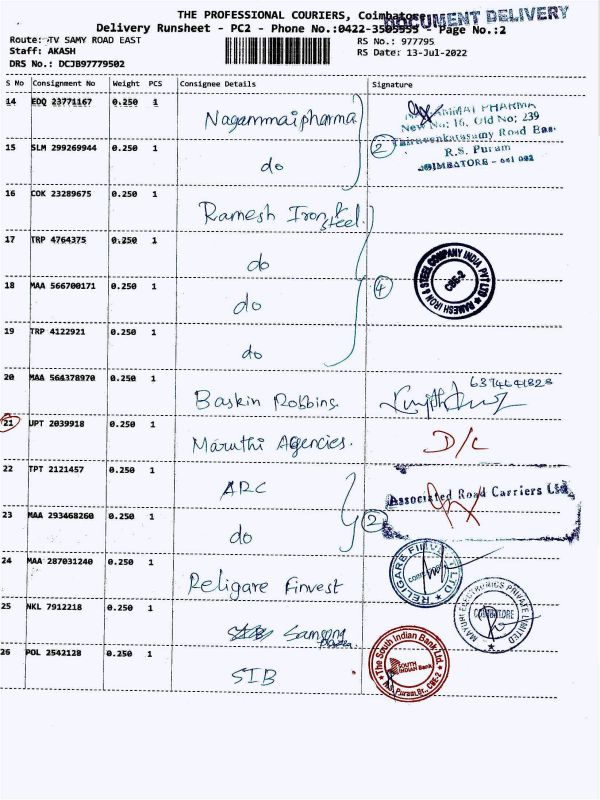 THE PROFESSIONAL COURIERS, Coimbatore
DOCUMENT DELIVERY
Delivery Runsheet - PC2 - Phone No.:0422-3505555 - Page No.:2
Route: TV SAMY ROAD EAST
RS No.: 977795
Staff: AKASH
RS Date: 13-Jul-2022
DRS No.: DCJB97779502
S No Consignment No Weight PCS Consignee Details Signature
14 EDQ 23771167 0.250 1 Nagammai pharma
NAGAMMAI PHARMA
New No: 16, Old No: 239
Thiruvenkatasamy Road
R.S. Puram
COIMBATORE - 641 002
15 SLM 299269944 0.250 1 do
2
16 COK 23289675 0.250 1 Ramesh Iron & Steel.
17 TRP 4764375 0.250 1 do
18 MAA 566700171 0.250 1 do
4
RAMESH IRON & STEEL COMPANY INDIA PVT LTD
CBE-2
19 TRP 4122921 0.250 1 do
20 MAA 564378970 0.250 1 Baskin Robbins.
21 UPT 2039918 0.250 1 Maruthi Agencies. D/L
22 TPT 2121457 0.250 1 ARC
Associated Road Carriers Ltd
23 MAA 293468260 0.250 1 do
2
24 MAA 287031240 0.250 1 Religare Finvest
RELIGARE FINVEST LTD
25 NKL 7912218 0.250 1 Samsung
MAYURI ELECTRONICS PRIVATE LIMITED
COIMBATORE
26 POL 2542128 0.250 1 SIB
The South Indian Bank Ltd.
SOUTH INDIAN Bank
R.S. Puram Br., CBE-2